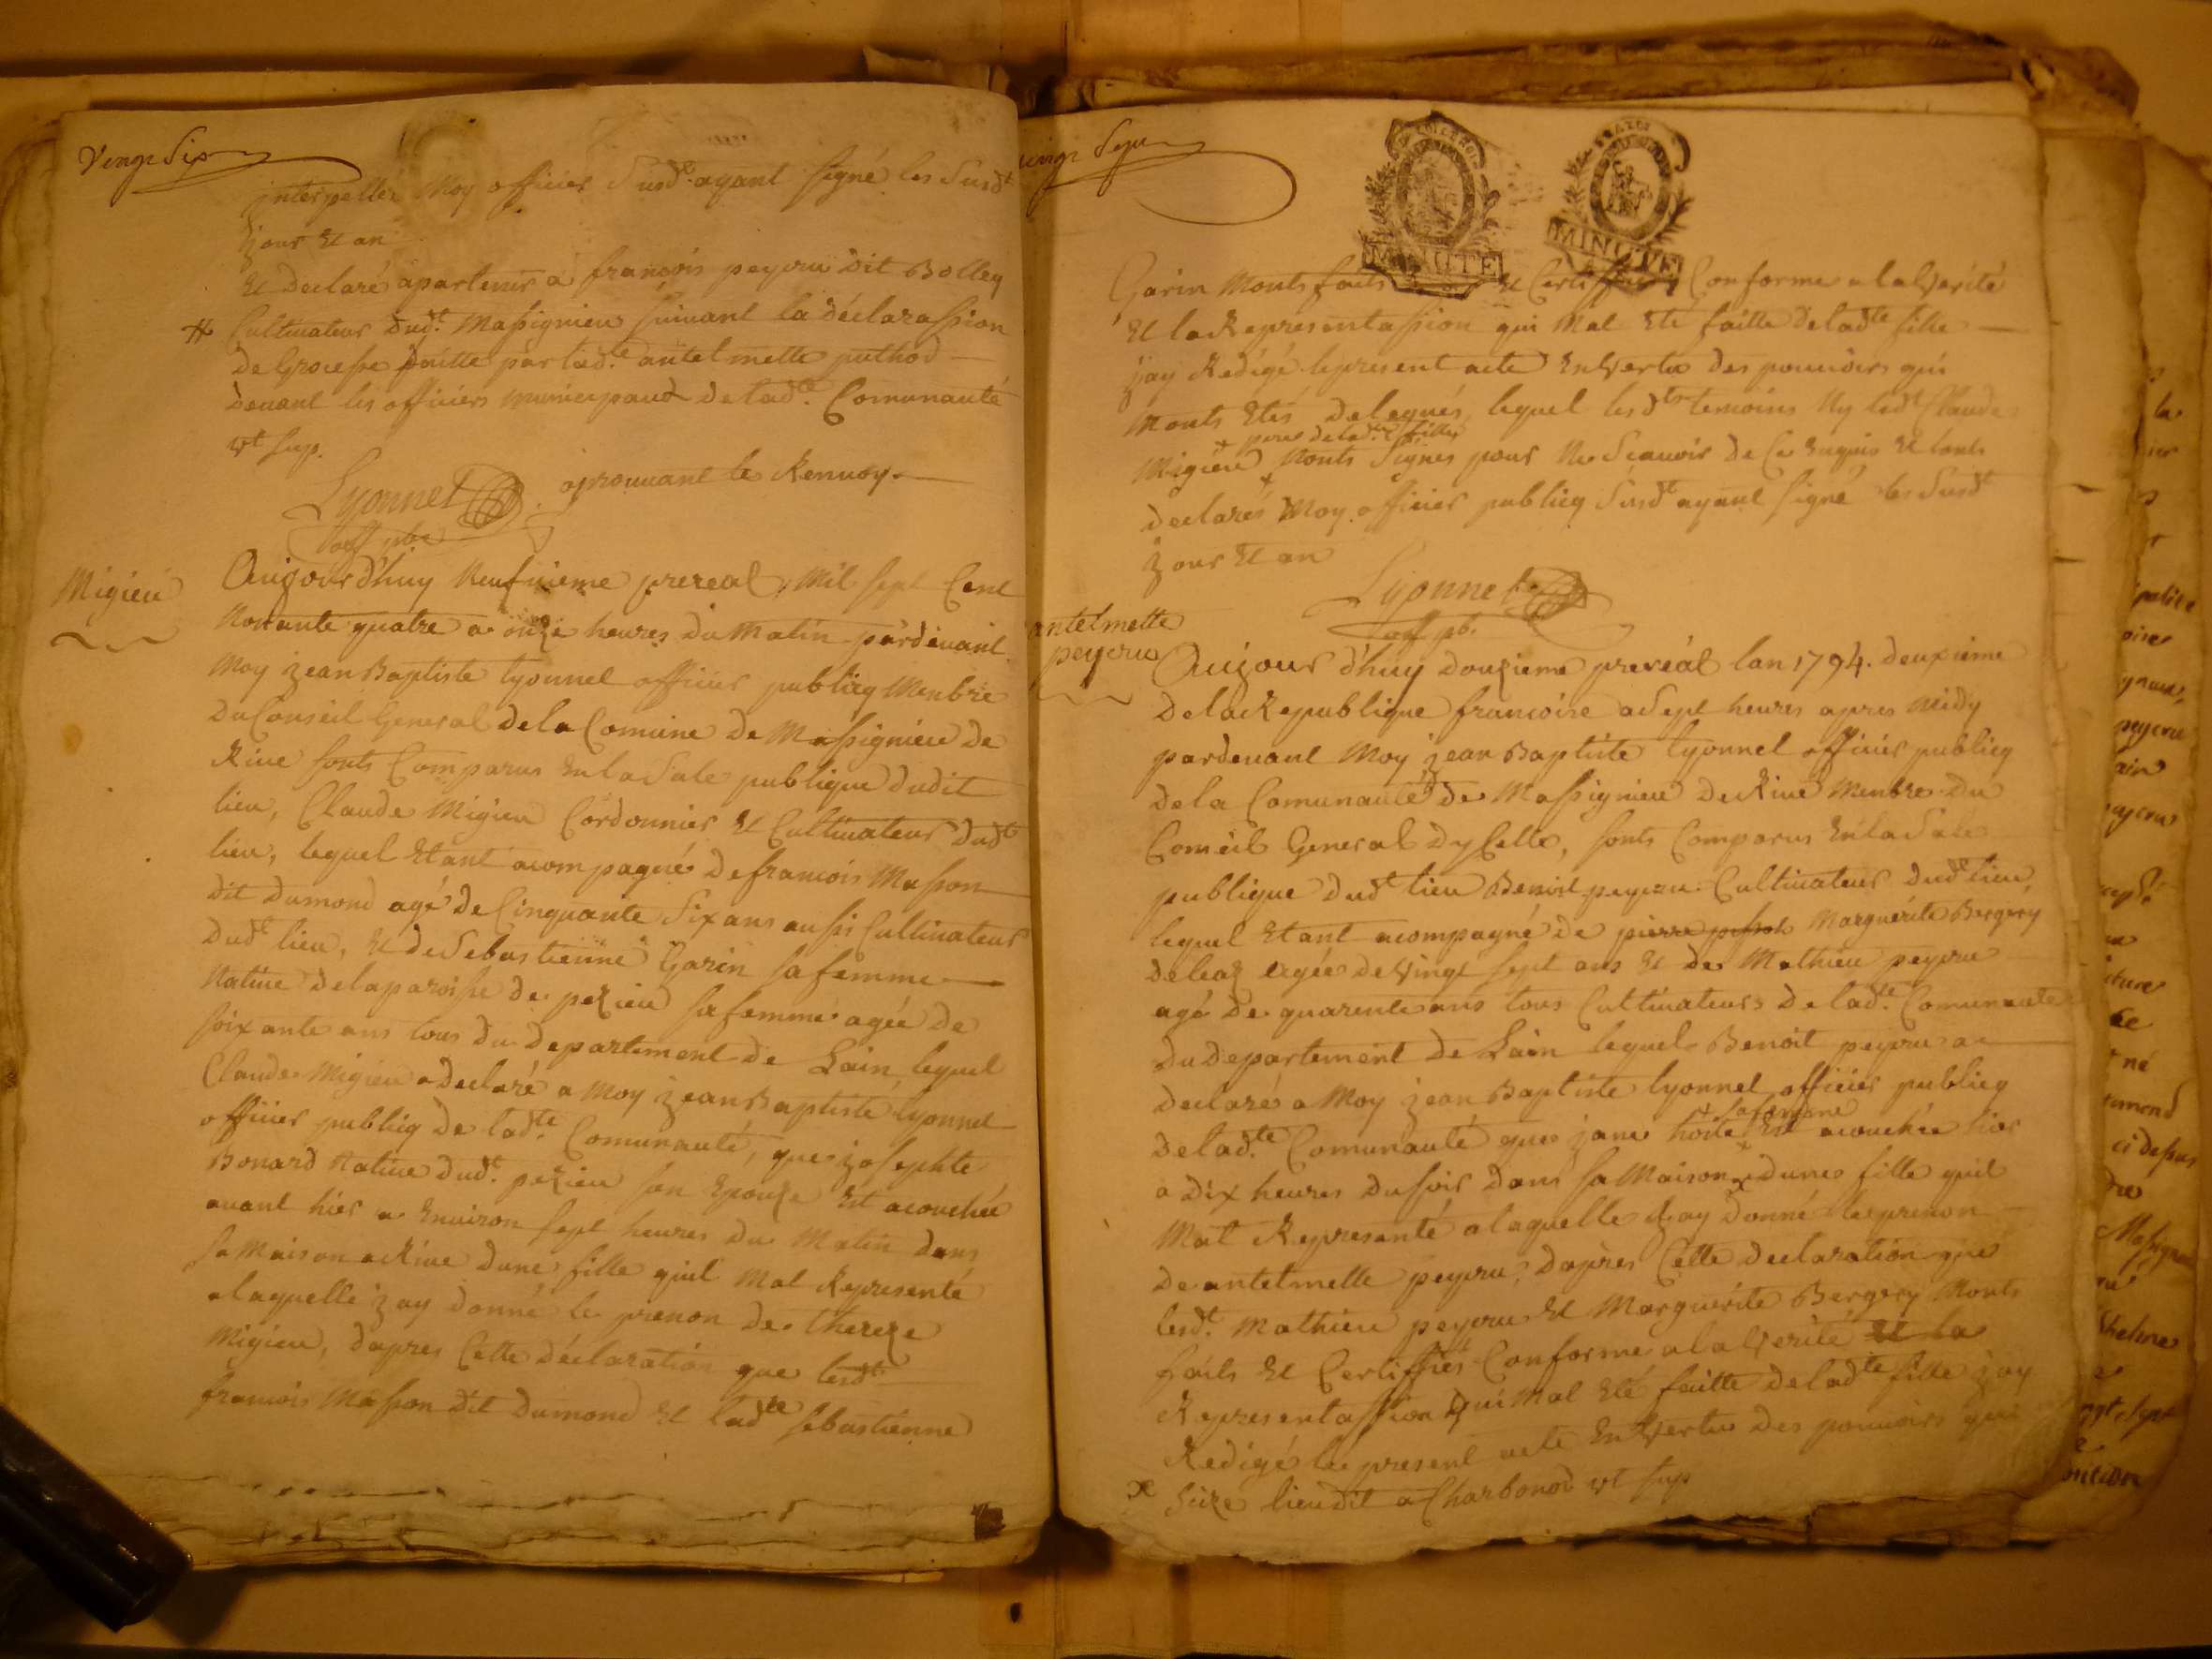 Vengt Six
interpellés Moy officier Susdt. ayant signé les Susdt
jour Et an
Et declaré apartenir a francois peycru dit Bolley
# Cultivateur dudt. Massignieu suivant la déclarassion
de Grocesse faitte par ladte. antelmette puthod
devant les officiers municipaud de ladte. Comunauté
vt sup.
Lyonnet aprouvant le Renvoy.
off pbc
Migieu
Aujourd'huy Neufvieme prereal, Mil sept Cent
Nonante quatre a onze heures du Matin pardevant
Moy jean Baptiste lyonnel officier publicq Menbre
du Conseil General de la Comune de Massignieu de
Rive sonts Comparus En la Sale publique dudit
lieu, Claude Migieu Cordonnier Et Cultivateur dudt
lieu, lequel Etant acompagné de francois Masson
dit dumond agé de Cinquante Six ans aussi Cultivateur
dudt lieu, Et de Sebastienne Garin sa femme
Native de la paroisse de pezieu sa femme agée de
soixante ans tous du departement de Lain, lequel
Claude Migieu a declaré a Moy jean Baptiste lyonnel
officier publicq de ladte. Comunauté, que josephte
Bonard Native dudt. pezieu son Epouze Est acouchée
avant hier a Environ sept heures du Matin dans
sa Maison a Rive dune fille quil Mat Representé
a laquelle jay donné le prenon de thereze
Migieu, dapres Cette déclaration que lesdts
francois Masson dit dumond Et ladte sebastienne
vingt Sept
MINUTE
MINUTE
Garin Monts faits Et Certiffier Conforme a la Verité
Et la Representassion qui Mat Eté faitte de ladte fille
jay Redigé le present acte En Vertu des pouvoirs qui
Monts Etés delegués, lequel lesdts temoins Ny ledt Claude
+ pere de ladte fille
Migieu + Nonts Signes pour Ne Scauoir de Ce Enquis Et lonts
declarés Moy officier publicq Susdt ayant signé les Susdt
jour Et an
Lyonnet
off pb.
antelmette
peycru
Aujourd'huy douzieme prereal lan 1794. deuxieme
de la Republique francoise a Sept heures apres Midy
pardevant Moy jean Baptiste lyonnel officier publicq
de la Comunauté de Massignieu de Rive Menbre du
Conseil General dyCelle, sonts Comparus En la Sale
publique dudt lieu Benoit peycru Cultivateur dudt lieu,
lequel Etant acompagné de pierre Marguérite Bergery
de leaz Agée de Vingt sept ans Et de Mathieu peycru
agé de quarente ans tous Cultivateurs de ladte. Comunauté
du departement de Lain lequel Benoit peycru a
declaré a Moy jean Baptiste lyonnel officier publicq
+ sa femme
de ladte. Comunauté que jane hoste + Est acouchée hier
a dix heures du soir dans sa Maison x dune fille quil
Mat Representé a laquelle jay donné le prenon
de antelmelle peycru, dapres Cette declaration que
lesdt. Mathieu peycru Et Marguérite Bergery Monts
faits Et Certiffiés Conforme a la Verité Et la
Representassion qui Mat Eté faitte de ladte fille jay
Redigé le present acte En Vertu des pouvoirs qui
x Size lieu dit a Charbonod vt sup